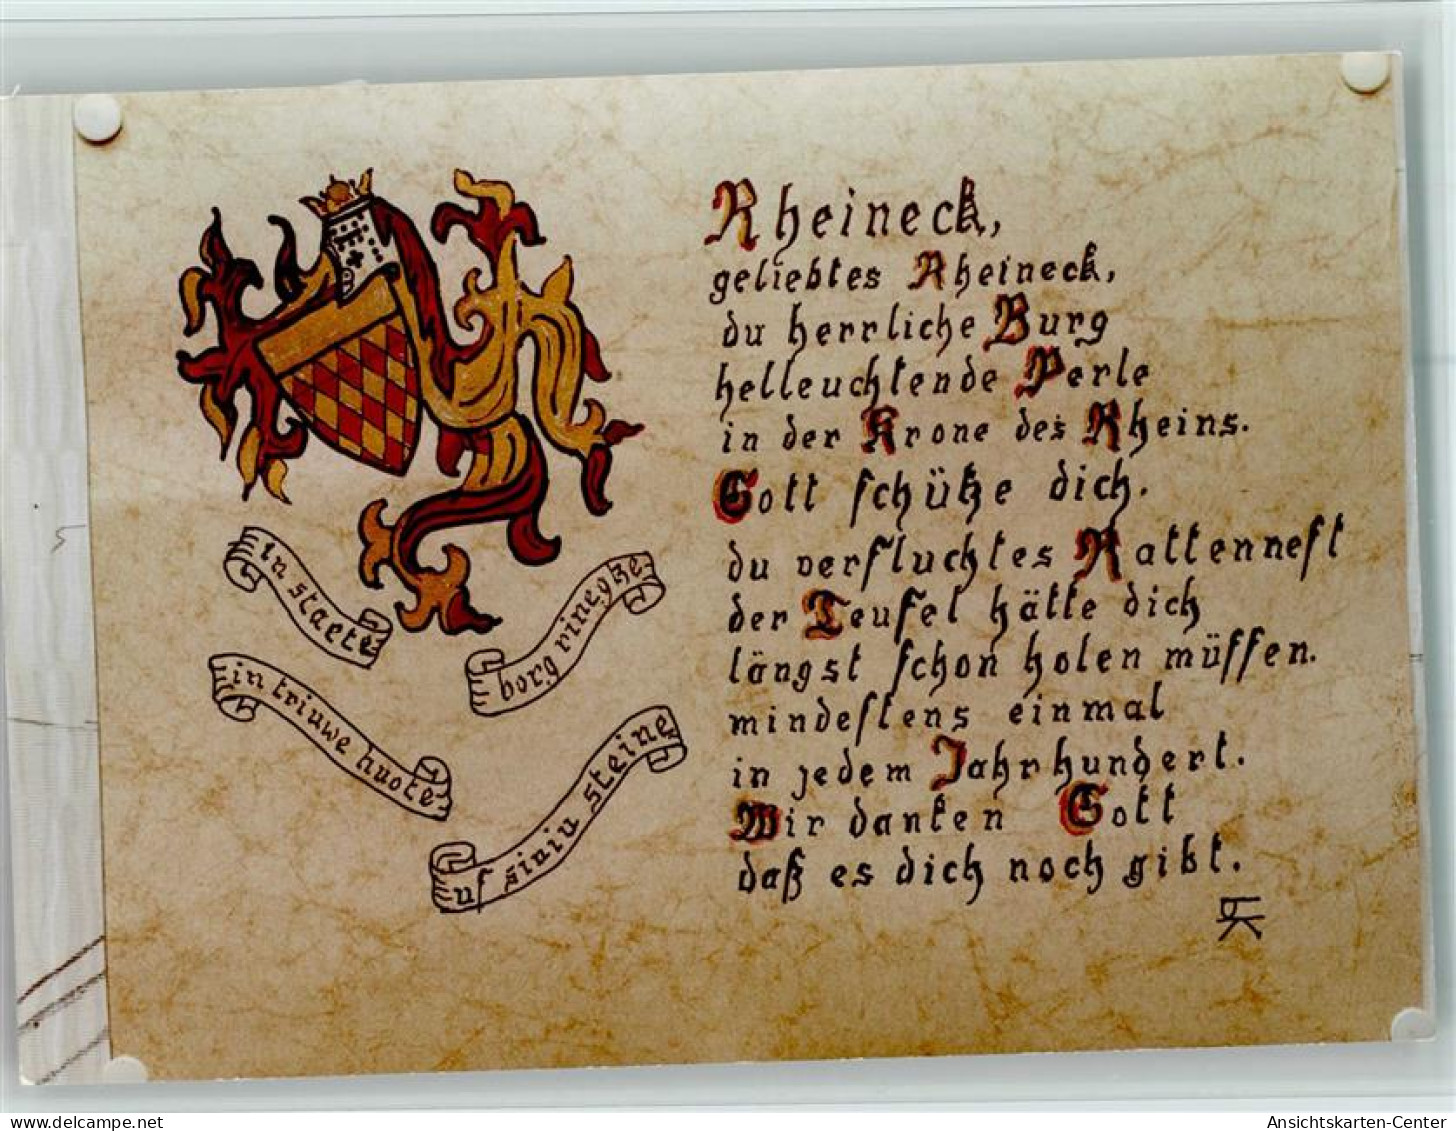 in staete
borg rinegke
in triuwe huote
uf siniu steine
Rheineck,
geliebtes Rheineck,
du herrliche Burg
helleuchtende Perle
in der Krone des Rheins.
Gott schütze dich.
du verfluchtes Rattennest
der Teufel hätte dich
längst schon holen müssen.
mindestens einmal
in jedem Jahrhundert.
Wir danken Gott
daß es dich noch gibt.
Ansichtskarten-Center